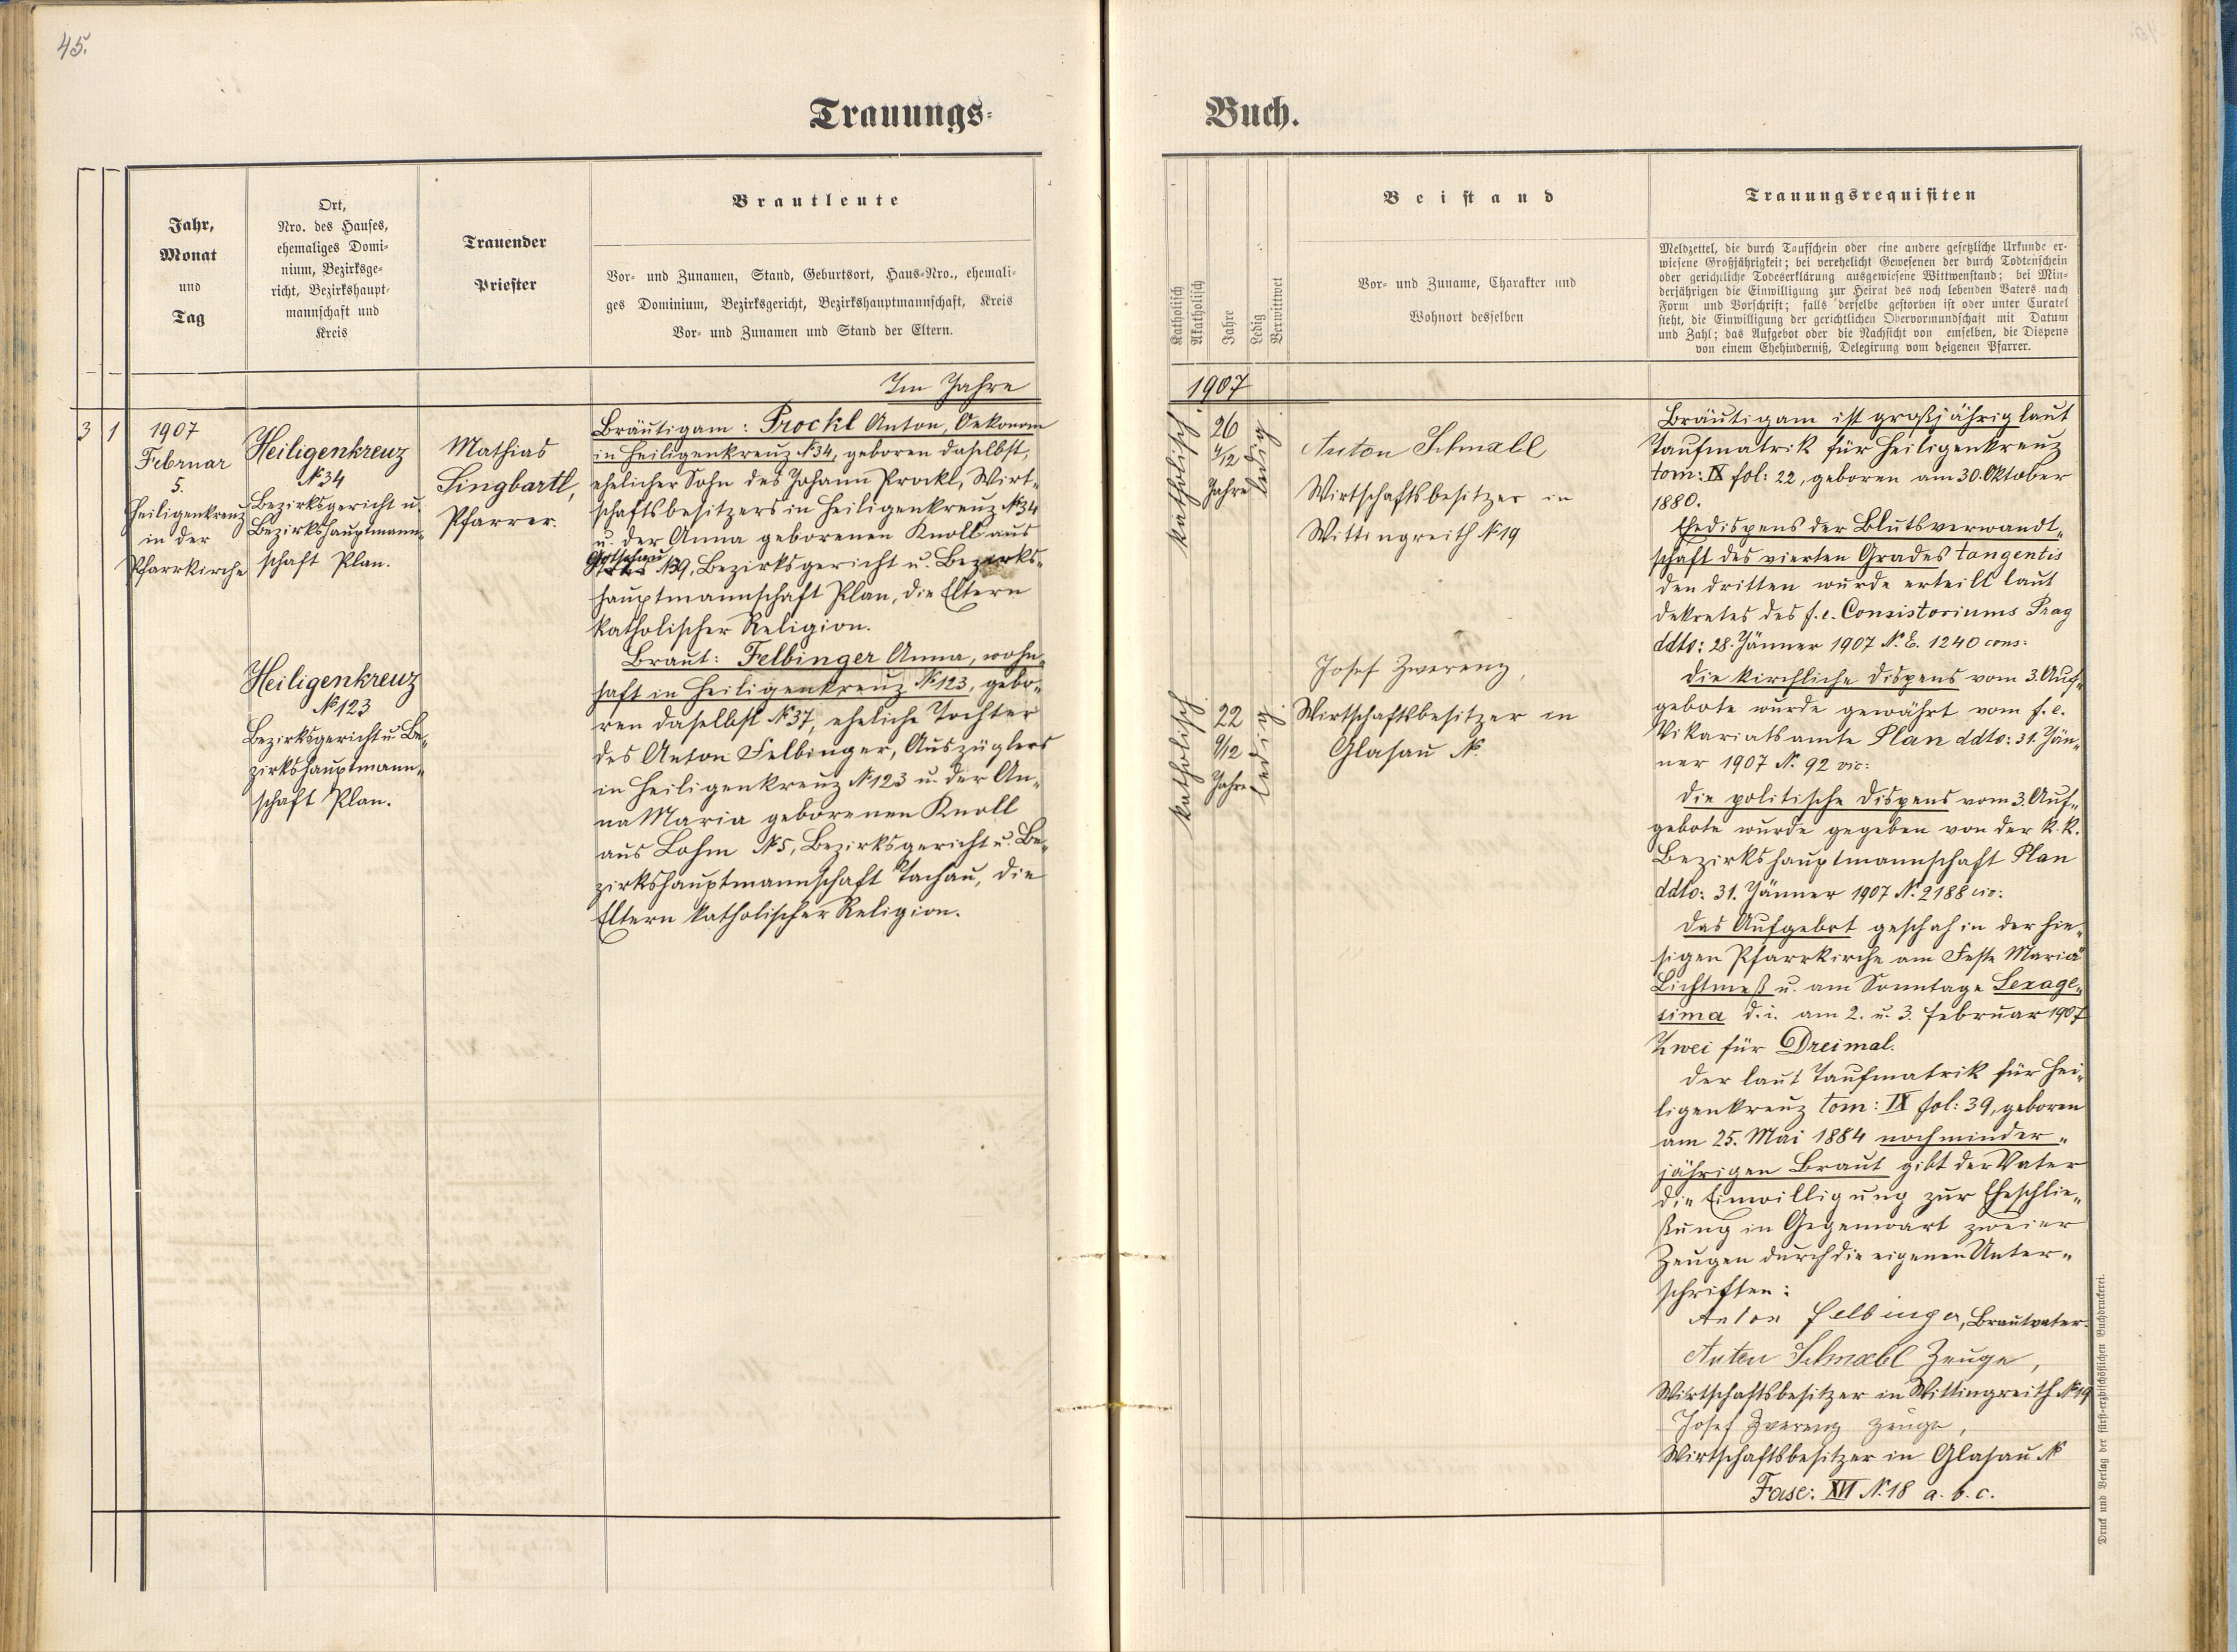 45.
Trauungs-
Buch.
Jahr,
Monat
und
Tag
Ort,
Nro. des Hauses,
ehemaliges Domi-
nium, Bezirksge-
richt, Bezirkshaupt-
mannschaft und
Kreis
Trauender
Priester
Brautleute
Vor- und Zunamen, Stand, Geburtsort, Haus-Nro., ehemali-
ges Dominium, Bezirksgericht, Bezirkshauptmannschaft, Kreis
Vor- und Zunamen und Stand der Eltern.
Katholisch
Akatholisch
Jahre
Ledig
Verwittwet
Beistand
Vor- und Zuname, Charakter und
Wohnort desselben
Trauungsrequisiten
Meldzettel, die durch Taufschein oder eine andere gesetzliche Urkunde er-
wiesene Großjährigkeit; bei verehelicht Gewesenen der durch Todtenschein
oder gerichtliche Todeserklärung ausgewiesene Wittwenstand; bei Min-
derjährigen die Einwilligung zur Heirat des noch lebenden Vaters nach
Form und Vorschrift; falls derselbe gestorben ist oder unter Curatel
steht, die Einwilligung der gerichtlichen Obervormundschaft mit Datum
und Zahl; das Aufgebot oder die Nachsicht von emselben, die Dispens
von einem Ehehinderniß, Delegirung vom deigenen Pfarrer.
Im Jahre
1907
3 1
1907
Februar
5.
Heiligenkreuz
in der
Pfarrkirche
Heiligenkreuz
№ 34
Bezirksgericht u.
Bezirkshauptmann„
schaft Plan.
Heiligenkreuz
№ 123
Bezirksgericht u. Be„
zirkshauptmann„
schaft Plan.
Mathias
Singbartl,
Pfarrer.
Bräutigam: Prockl Anton, Oekonom
in Heiligenkreuz № 34, geboren daselbst,
ehelicher Sohn des Johann Prockl, Wirt„
schaftsbesitzers in Heiligenkreuz № 34
u. der Anna geborenen Knoll aus
Gottschau
№ 9, Bezirksgericht u. Bezirks„
hauptmannschaft Plan, die Eltern
katholischer Religion.
Braut: Felbinger Anna, wohn„
haft in Heiligenkreuz № 123, gebo„
ren daselbst № 37, eheliche Tochter
des Anton Felbinger, Auszüglers
in Heiligenkreuz № 123 u. der An„
na Maria geborenen Knoll
aus Lohm № 5, Bezirksgericht u. Be„
zirkshauptmannschaft Tachau, die
Eltern katholischer Religion.
katholisch.
26
Jahre
ledig.
katholisch.
22
9/12
Jahre
ledig.
Anton Schnabl
Wirtschaftsbesitzer in
Wittingreith № 19
Josef Zwerenz,
Wirtschaftsbesitzer in
Glasau №
Bräutigam ist großjährig laut
Taufmatrik für Heiligenkreuz
tom: IX fol: 22, geboren am 30. Oktober
1880.
Ehedispens der Blutsverwandt„
schaft des vierten Grades tangentis
den dritten wurde erteilt laut
Dekretes des f. e. Consistoriums Prag
ddto: 28. Jänner 1907 N. E. 1240 cons:
Die kirchliche Dispens vom 3. Auf„
gebote wurde gewährt vom f. e.
Vikariatsamte Plan ddto: 31. Jän„
ner 1907 N. 92 vic:
Die politische Dispens vom 3. Auf„
gebote wurde gegeben von der k. k.
Bezirkshauptmannschaft Plan
ddto: 31. Jänner 1907 N. 2188 civ:
Das Aufgebot geschah in der hie„
sigen Pfarrkirche am Feste Mariä
Lichtmeß u. am Sonntage Sexage„
sima d. i. am 2. u. 3. Februar 1907
Zwei für Dreimal.
Der laut Taufmatrik für Hei„
ligenkreuz tom: IX fol: 39, geboren
am 25. Mai 1884 noch minder„
jährigen Braut gibt der Vater
die Einwilligung zur Eheschlie„
ßung in Gegenwart zweier
Zeugen durch die eigenen Unter„
schriften:
Anton Felbinger, Brautvater.
Anton Schnabl Zeuge,
Wirtschaftsbesitzer in Wittingreith № 19
Josef Zwerenz Zeuge,
Wirtschaftsbesitzer in Glasau №
Fasc: XVI N. 18 a. b. c.
Druck und Verlag der fürst-erzbischöflichen Buchdruckerei.